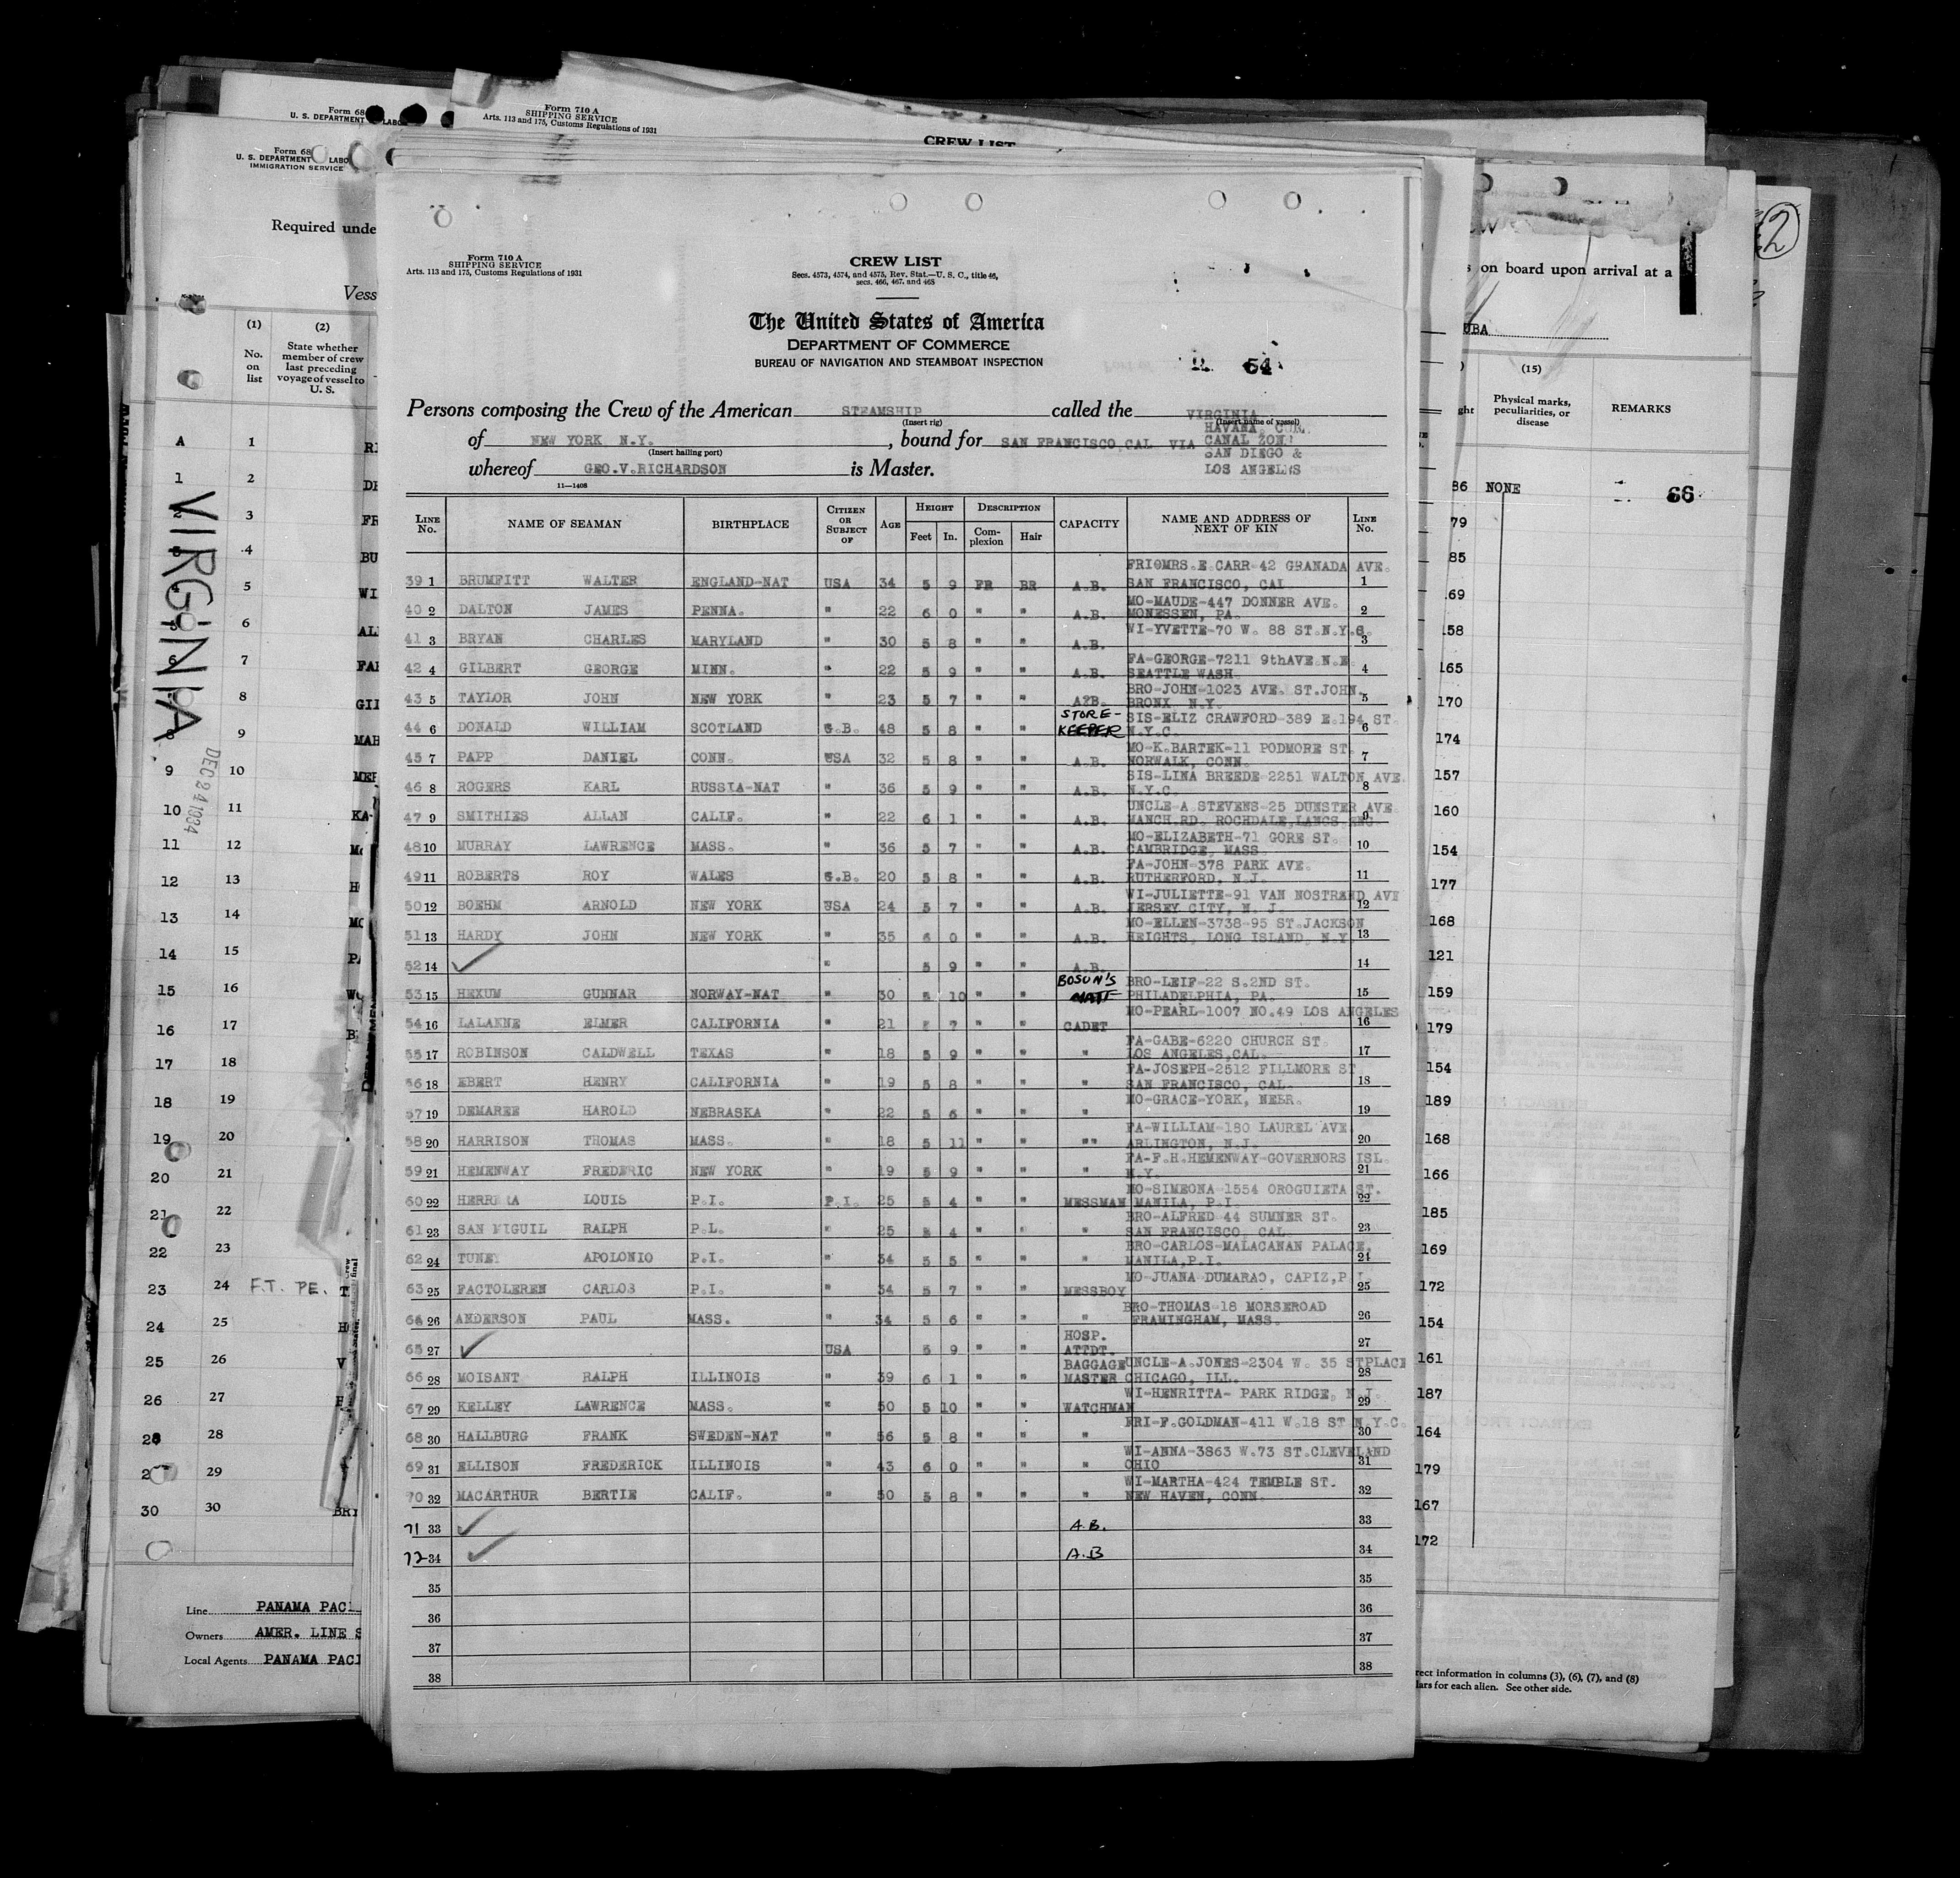 Form 710 A
SHIPPING SERVICE
Arts. 113 and 175, Customs Regulations of 1931
CREW LIST
Form 68
U. S. DEPARTMENT LABO
Form 68
U. S. DEPARTMENT LABO
IMMIGRATION SERVICE
Required unde
Vess
(1) (2)
No. on list
State whether member of crew last preceding voyage of vessel to U. S.
VIRGINIA
DEC 24 1934
F.T. PE.
Line PANAMA PAC
Owners AMER. LINE S
Local Agents PANAMA PACI
Form 710 A
SHIPPING SERVICE
Arts. 113 and 175, Customs Regulations of 1931
CREW LIST
Secs. 4573, 4574, and 4575, Rev. Stat.—U. S. C., title 46,
secs. 466, 467, and 468
The United States of America
DEPARTMENT OF COMMERCE
BUREAU OF NAVIGATION AND STEAMBOAT INSPECTION
64
Persons composing the Crew of the American STEAMSHIP called the VIRGINIA
(Insert rig) (Insert name of vessel)
HAVANA, CUB.
of NEW YORK N.Y. , bound for SAN FRANCISCO, CAL VIA CANAL ZONE
(Insert hailing port) SAN DIEGO &
whereof GEO.V.RICHARDSON is Master. LOS ANGELES
11—1408
LINE No. NAME OF SEAMAN BIRTHPLACE CITIZEN OR SUBJECT OF AGE HEIGHT Feet In. DESCRIPTION Complexion Hair CAPACITY NAME AND ADDRESS OF NEXT OF KIN LINE No.
FRI=MRS.E.CARR-42 GRANADA AVE.
39 1 BRUMFITT WALTER ENGLAND-NAT USA 34 5 9 FR BR A.B. SAN FRANCISCO, CAL 1
MO-MAUDE-447 DONNER AVE.
40 2 DALTON JAMES PENNA. " 22 6 0 " " A.B. MONESSEN, PA. 2
WI-YVETTE-70 W. 88 ST.N.Y.C.
41 3 BRYAN CHARLES MARYLAND " 30 5 8 " " A.B. 3
FA-GEORGE-7211 9thAVE.N.E.
42 4 GILBERT GEORGE MINN. " 22 5 9 " " A.B. SEATTLE WASH. 4
BRO-JOHN-1023 AVE. ST.JOHN.
43 5 TAYLOR JOHN NEW YORK " 23 5 7 " " A.B. BRONX N.Y. 5
STORE- SIS-ELIZ CRAWFORD-389 E.194 ST
44 6 DONALD WILLIAM SCOTLAND G.B. 48 5 8 " " KEEPER N.Y.C. 6
MO-K.BARTEK-11 PODMORE ST.
45 7 PAPP DANIEL CONN. USA 32 5 8 " " A.B. NORWALK, CONN. 7
SIS-LINA BREEDE-2251 WALTON AVE.
46 8 ROGERS KARL RUSSIA-NAT " 36 5 9 " " A.B. N.Y.C. 8
UNCLE-A.STEVENS-25 DUNSTER AVE
47 9 SMITHIES ALLAN CALIF. " 22 6 1 " " A.B. MANCH.RD. ROCHDALE,LANCS.ENG. 9
MO-ELIZABETH-71 GORE ST.
48 10 MURRAY LAWRENCE MASS. " 36 5 7 " " A.B. CAMBRIDGE, MASS 10
FA-JOHN-378 PARK AVE.
49 11 ROBERTS ROY WALES G.B. 20 5 8 " " A.B. RUTHERFORD, N.J. 11
WI-JULIETTE-91 VAN NOSTRAND AVE
50 12 BOEHM ARNOLD NEW YORK USA 24 5 7 " " A.B. JERSEY CITY, N. J. 12
MO-ELLEN-3738-95 ST.JACKSON
51 13 HARDY JOHN NEW YORK " 35 6 0 " " A.B. HEIGHTS, LONG ISLAND, N.Y. 13
52 14 " 5 9 " " A.B. 14
BOSUN'S BRO-LEIF-22 S.2ND ST.
53 15 HEXUM GUNNAR NORWAY-NAT " 30 5 10 " " MATE PHILADELPHIA, PA. 15
MO-PEARL-1007 NO.49 LOS ANGELES
54 16 LALANNE ELMER CALIFORNIA " 21 7 " " CADET 16
FA-GABE-6220 CHURCH ST.
55 17 ROBINSON CALDWELL TEXAS " 18 5 9 " " " LOS ANGELES,CAL. 17
FA-JOSEPH-2512 FILLMORE ST
56 18 EBERT HENRY CALIFORNIA " 19 5 8 " " " SAN FRANCISCO, CAL. 18
MO-GRACE-YORK, NEBR.
57 19 DEMAREE HAROLD NEBRASKA " 22 5 6 " " " 19
FA-WILLIAM-180 LAUREL AVE
58 20 HARRISON THOMAS MASS. " 18 5 11 " " "" ARLINGTON, N.J. 20
FA-F.H.HEMENWAY-GOVERNORS ISL.
59 21 HEMENWAY FREDERIC NEW YORK " 19 5 9 " " " N.Y. 21
MO-SIMEONA-1554 OROGUIETA ST.
60 22 HERRERA LOUIS P.I. P.I. 25 5 4 " " MESSMAN MANILA, P.I. 22
BRO-ALFRED-44 SUMNER ST.
61 23 SAN MIGUIL RALPH P.L. " 25 5 4 " " " SAN FRANCISCO, CAL. 23
BRO-CARLOS-MALACANAN PALACE,
62 24 TUNEY APOLONIO P.I. " 34 5 5 " " " MANILA,P.I. 24
MO-JUANA DUMARAO, CAPIZ,P.I.
63 25 FACTOLEREN CARLOS P.I. " 34 5 7 " " MESSBOY 25
BRO-THOMAS-18 MORSEROAD
64 26 ANDERSON PAUL MASS. " 34 5 6 " " " FRAMINGHAM, MASS. 26
HOSP.
65 27 USA 5 9 " " ATTDT. 27
BAGGAGE UNCLE-A.JONES-2304 W. 35 STPLACE
66 28 MOISANT RALPH ILLINOIS " 39 6 1 " " MASTER CHICAGO, ILL. 28
WI-HENRITTA- PARK RIDGE, N.J.
67 29 KELLEY LAWRENCE MASS. " 50 5 10 " " WATCHMAN 29
FRI-F.GOLDMAN-411 W.18 ST N.Y.C.
68 30 HALLBURG FRANK SWEDEN-NAT " 56 5 8 " " " 30
WI-ANNA-3863 W.73 ST.CLEVELAND
69 31 ELLISON FREDERICK ILLINOIS " 43 6 0 " " " OHIO 31
WI-MARTHA-424 TEMPLE ST.
70 32 MACARTHUR BERTIE CALIF. " 50 5 8 " " " NEW HAVEN, CONN. 32
71 33 A.B. 33
72 34 A.B 34
35 35
36 36
37 37
38 38
2
s on board upon arrival at a
UBA
(15)
Physical marks, peculiarities, or disease
REMARKS
86 NONE 66
79
85
169
158
165
170
174
157
160
154
177
168
121
159
179
154
189
168
166
185
169
172
154
161
187
164
179
167
172
rect information in columns (3), (6), (7), and (8)
lars for each alien. See other side.